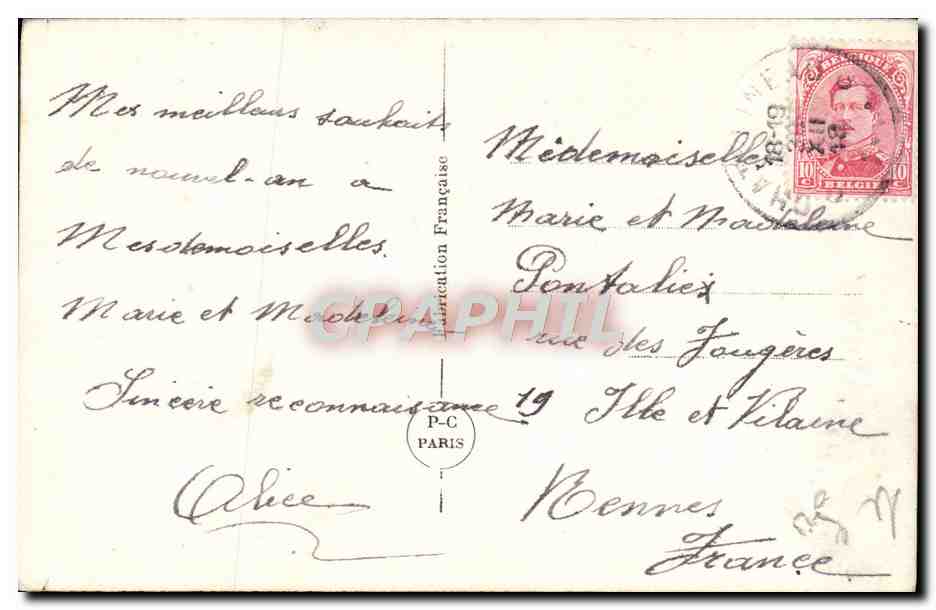 Mes meilleurs souhaits
de nouvel-an à
Mesdemoiselles.
Marie et Madeleine
Sincère reconnaissance
Alice
Fabrication Française
P-C
PARIS
Médemoiselles
Marie et Madeleine
Pontaliex
rue des Fougères
19 Ille et Vilaine
Rennes
France
BELGIQUE
10 C 10 C
BELGIË
18-19
XII
CPAPHIL